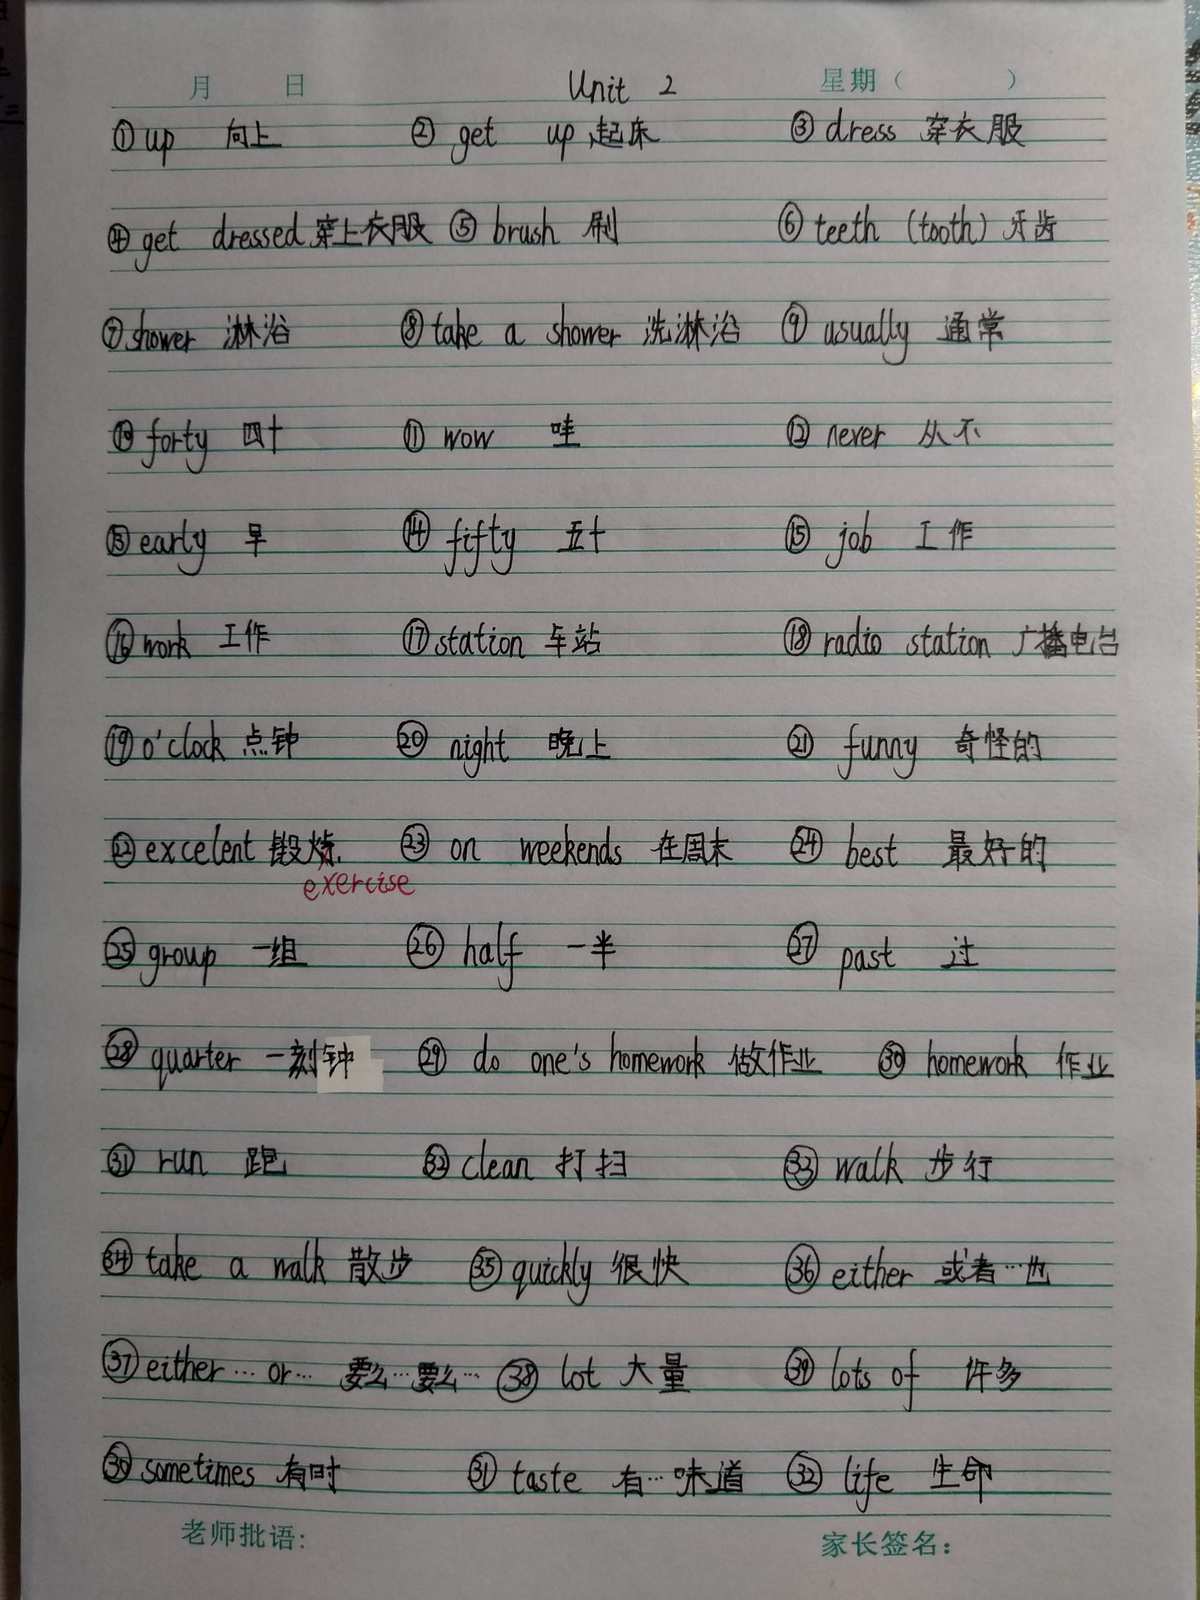 月 日 Unit 2 星期（ ）
①up 向上 ② get up 起床 ③ dress 穿衣服
④ get dressed 穿上衣服 ⑤ brush 刷 ⑥ teeth (tooth) 牙齿
⑦ shower 淋浴 ⑧ take a shower 洗淋浴 ⑨ usually 通常
⑩ forty 四十 ⑪ wow 哇 ⑫ never 从不
⑬ early 早 ⑭ fifty 五十 ⑮ job 工作
⑯ work 工作 ⑰ station 车站 ⑱ radio station 广播电台
⑲ o'clock 点钟 ⑳ night 晚上 ㉑ funny 奇怪的
㉒ excelent 锻炼 ㉓ on weekends 在周末 ㉔ best 最好的
exercise
㉕ group 一组 ㉖ half 一半 ㉗ past 过
㉘ quarter 一刻钟 ㉙ do one's homework 做作业 ㉚ homework 作业
㉛ run 跑 ㉜ clean 打扫 ㉝ walk 步行
㉞ take a walk 散步 ㉟ quickly 很快 ㊱ either 或者…也
㊲ either…or… 要么…要么… ㊳ lot 大量 ㊴ lots of 许多
㉚ sometimes 有时 ㉛ taste 有…味道 ㉜ life 生命
老师批语: 家长签名: